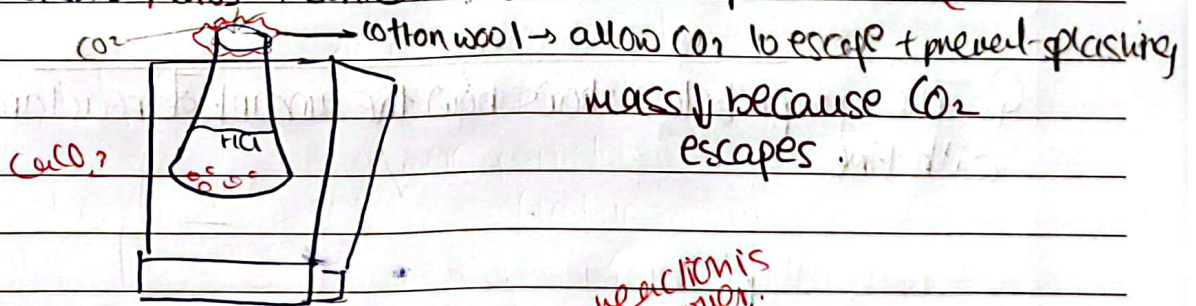 CO2
cotton wool → allow CO2 to escape + prevent splashing
mass↓ because CO2
escapes.
HCl
CaCO3
reaction is